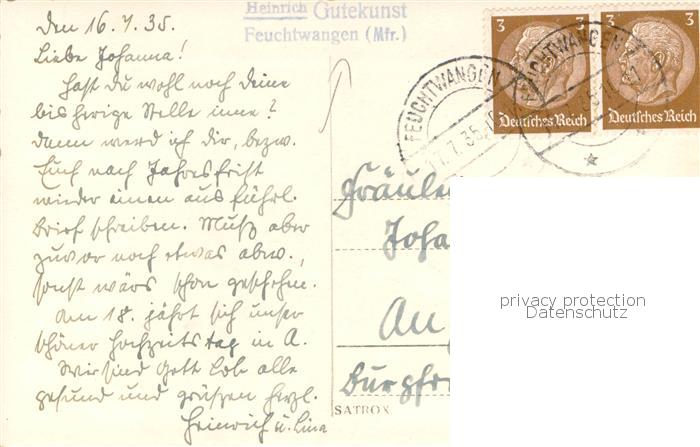 Den 16.7.35.
Liebe Johanna!
Hast Du wohl noch Deine
bisherige Stelle inne?
Dann werd ich Dir, bezw.
Euch nach Jahresfrist
wieder einen ausführl.
Brief schreiben. Muß aber
zuvor noch etwas abw.,
sonst wärs schon geschehen.
Am 18. jährt sich unser
schöner Hochzeitstag in A.
Wir sind Gott Lob alle
gesund und grüßen herzl.
Heinrich u. Lina
Heinrich Gutekunst
Feuchtwangen (Mfr.)
3 3
Deutsches Reich Deutsches Reich
FEUCHTWANGEN
17.7.35
FEUCHTWANGEN
Fräule
Joha
An
SATROX
privacy protection
Datenschutz